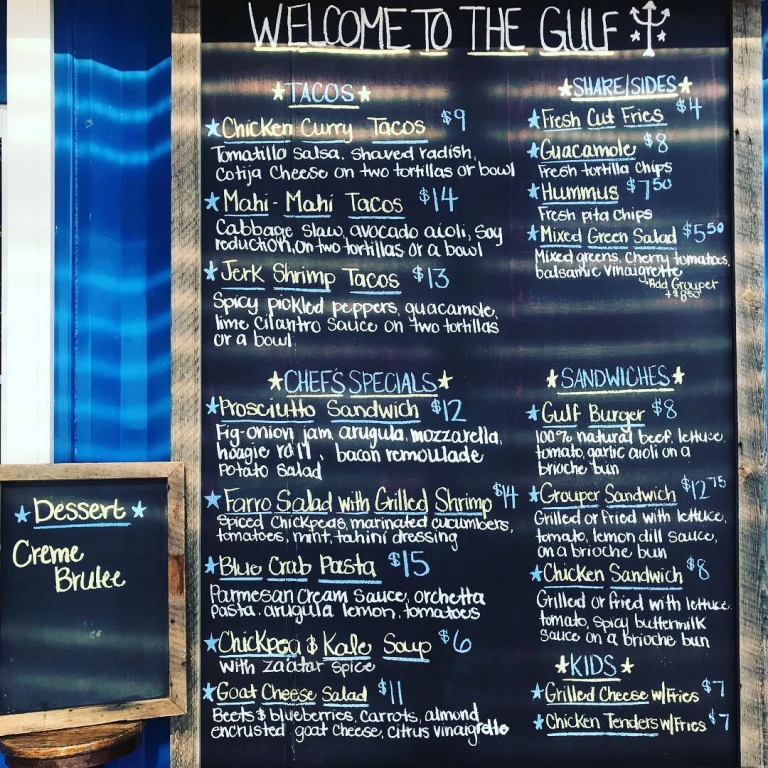 WELCOME TO THE GULF
★TACOS★
★Chicken Curry Tacos $9
Tomatillo Salsa, shaved radish,
Cotija Cheese on two tortillas or bowl
★Mahi-Mahi Tacos $14
Cabbage slaw, avocado aioli, soy
reduction, on two tortillas or a bowl
★Jerk Shrimp Tacos $13
Spicy pickled peppers, guacamole,
lime cilantro sauce on two tortillas
or a bowl
★CHEF'S SPECIALS★
★Prosciutto Sandwich $12
Fig-onion jam, arugula, mozzarella,
hoagie roll, bacon remoulade
potato salad
★Farro Salad with Grilled Shrimp $14
Spiced Chickpeas, marinated cucumbers,
tomatoes, mint, tahini dressing
★Blue Crab Pasta $15
Parmesan cream sauce, orchetta
pasta, arugula lemon, tomatoes
★Chickpea & Kale Soup $6
with za'atar spice
★Goat Cheese Salad $11
Beets & blueberries, carrots, almond
encrusted goat cheese, citrus vinaigrette
★SHARE/SIDES★
★Fresh Cut Fries $4
★Guacamole $8
Fresh tortilla chips
★Hummus $7.50
Fresh pita chips
★Mixed Green Salad $5.50
Mixed greens, cherry tomatoes,
balsamic vinaigrette
+Add Grouper
+$8.50
★SANDWICHES★
★Gulf Burger $8
100% natural beef, lettuce,
tomato, garlic aioli on a
brioche bun
★Grouper Sandwich $12.75
Grilled or fried with lettuce,
tomato, lemon dill sauce,
on a brioche bun
★Chicken Sandwich $8
Grilled or fried with lettuce,
tomato, spicy buttermilk
sauce on a brioche bun
★KIDS★
★Grilled Cheese w/Fries $7
★Chicken Tenders w/Fries $7
★Dessert★
Creme
Brulee